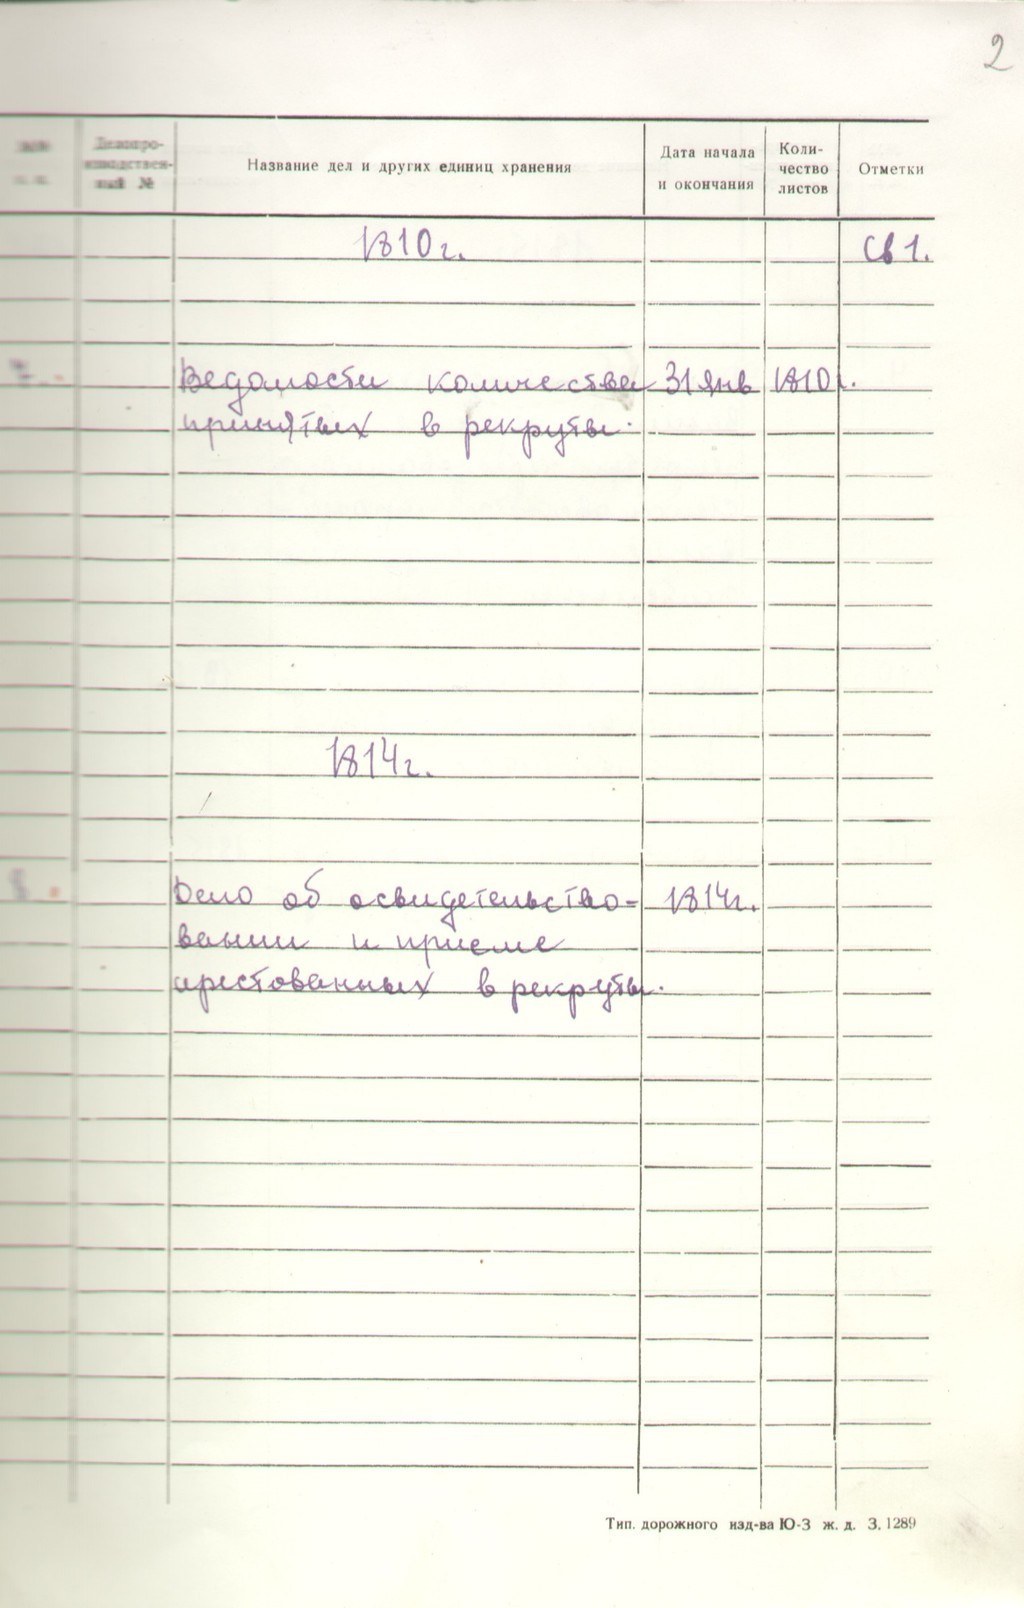 2
Делопро-
изводствен-
ный №
Название дел и других единиц хранения
Дата начала
и окончания
Коли-
чество
листов
Отметки
1810 г.
Св 1.
7.
Ведомости количества 31 янв 1810 г.
принятых в рекруты.
1814 г.
8.
Дело об освидетельство- 1814 г.
вании и приеме
арестованных в рекруты.
Тип. дорожного изд-ва Ю-З ж. д. З. 1289